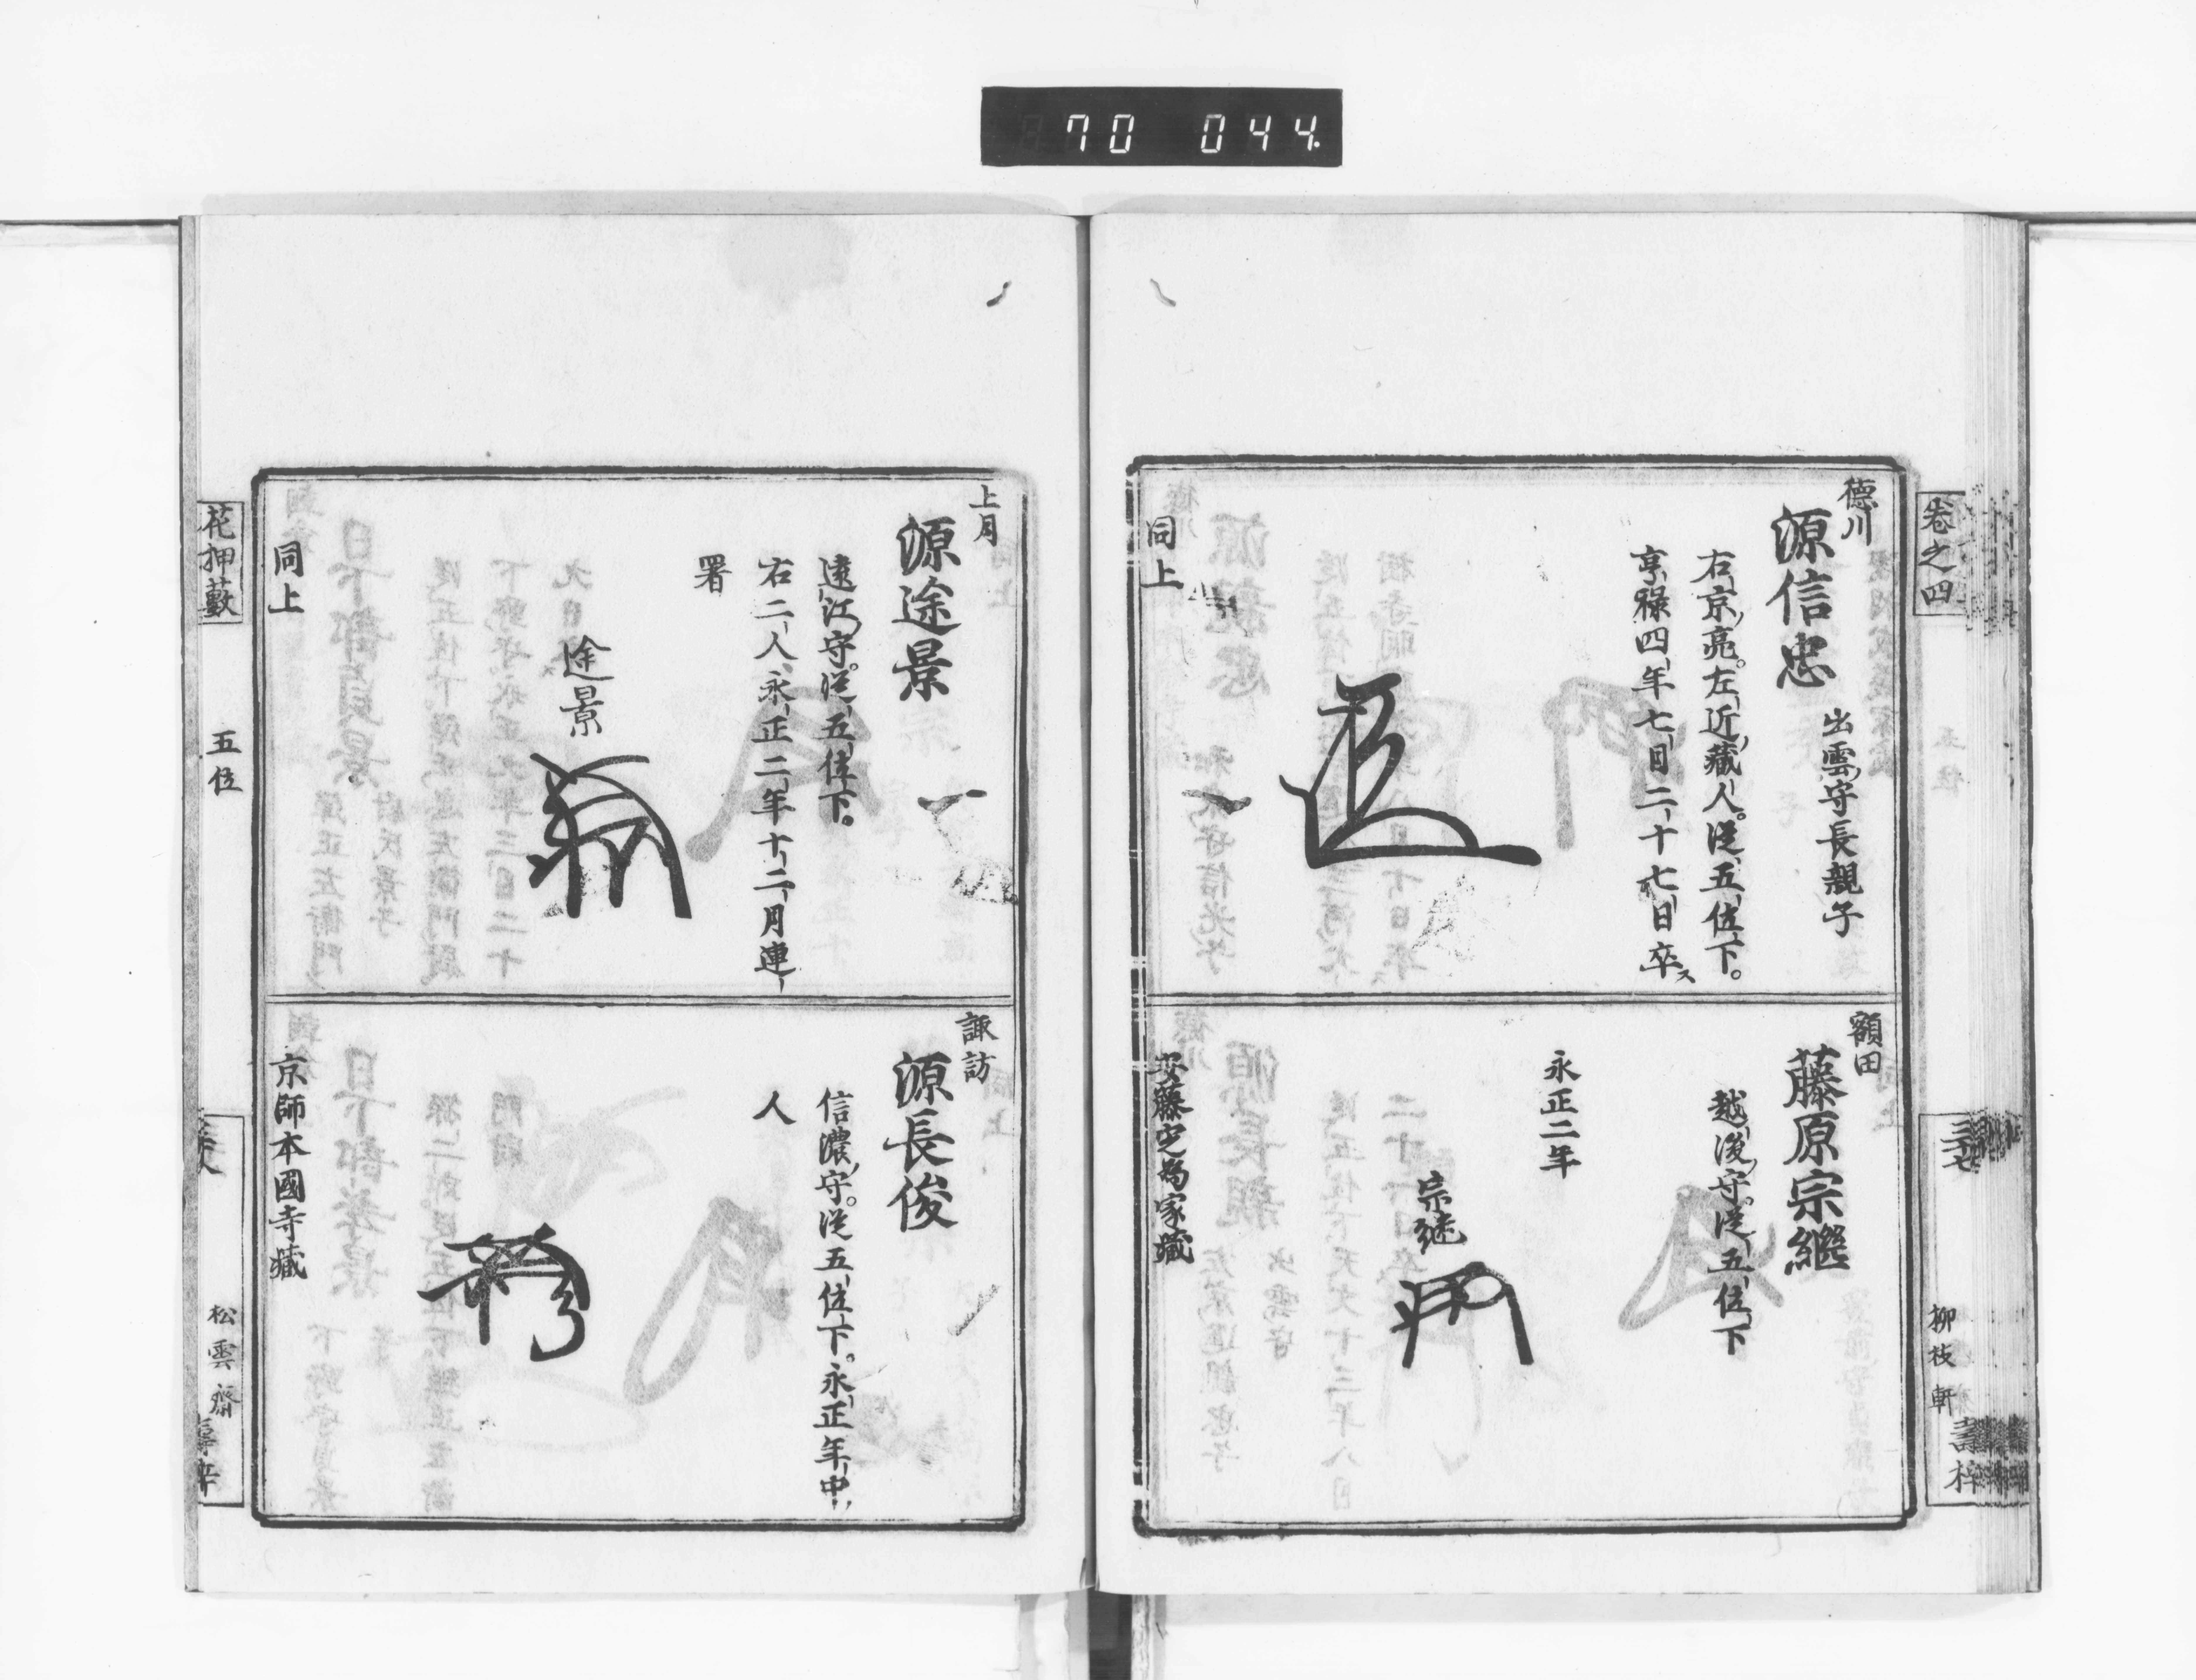 70 044.
卷之四
德川
源信忠
出雲守長親子
右京亮。左近藏人。從五位下。
享祿四年七月二十七日卒ス
同上
額田
藤原宗繼
越後守。從五位下
永正二年
宗継
安藤定為家藏
三十七
柳枝軒
壽梓
上月
源途景
遠江守。從五位下。
右二人永正二年十二月連
署
途景
同上
諏訪
源長俊
信濃守。從五位下。永正年中
人
京師本國寺藏
花押藪
五位
松雲齋